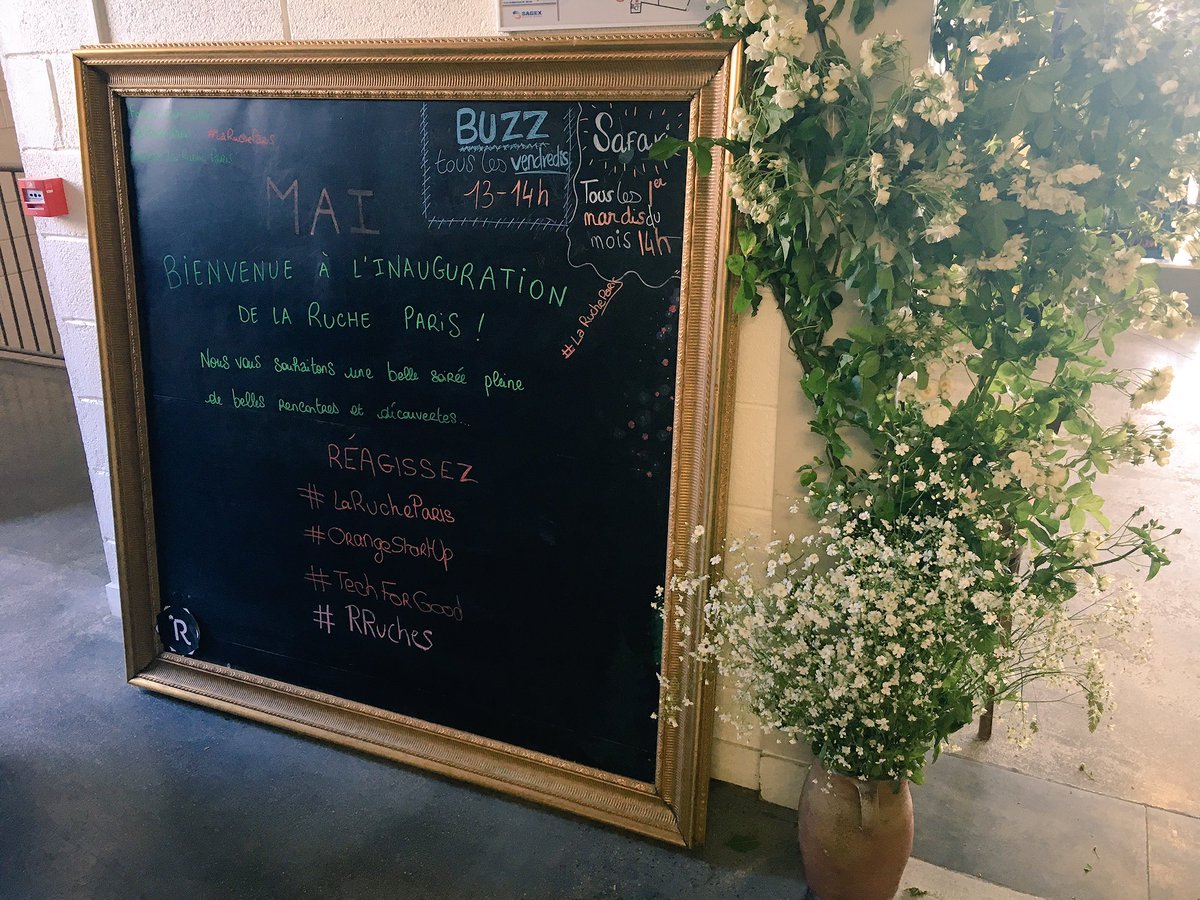 SAGEX
#LaRucheParis
BUZZ
tous les vendredis
13-14h
Safari
Tous les 1er
mardis du
mois 14h
#LaRucheParis
MAI
BIENVENUE À L'INAUGURATION
DE LA RUCHE PARIS !
Nous vous souhaitons une belle soirée pleine
de belles rencontres et découvertes...
RÉAGISSEZ
# LaRucheParis
#OrangeStartUp
#TechForGood
# RRuches
R